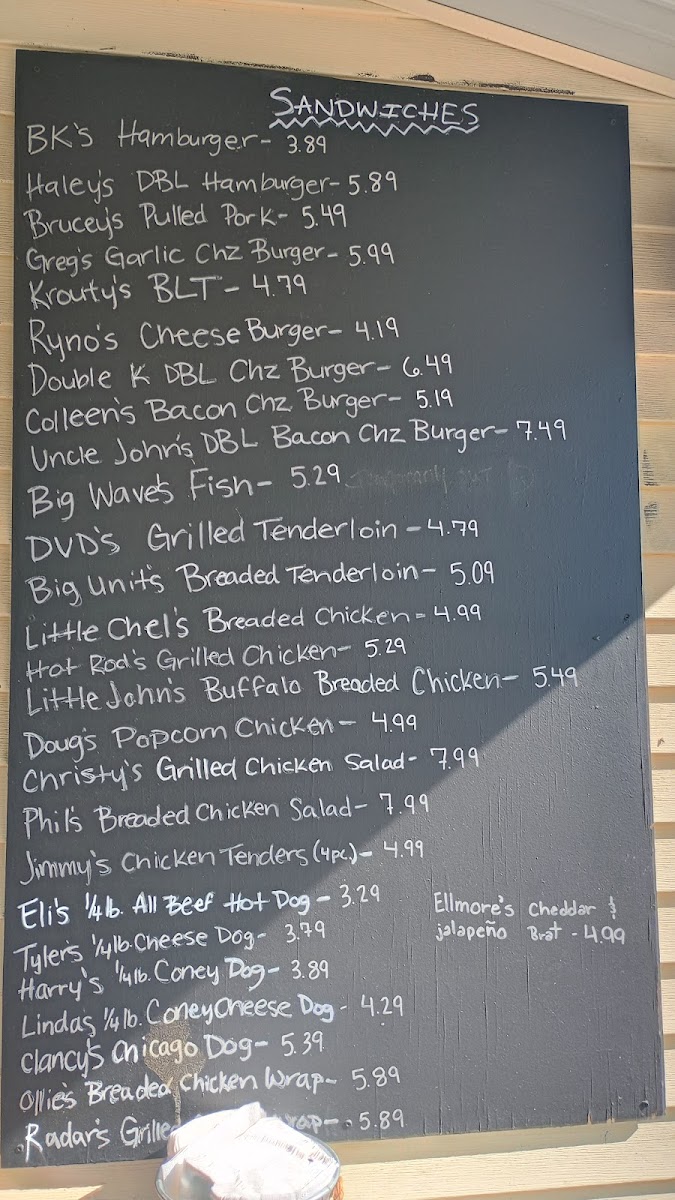 SANDWICHES
BK's Hamburger- 3.89
Haley's DBL Hamburger- 5.89
Brucey's Pulled Pork- 5.49
Greg's Garlic Chz Burger- 5.99
Krouty's BLT- 4.79
Ryno's Cheese Burger- 4.19
Double K DBL Chz Burger- 6.49
Colleen's Bacon Chz Burger- 5.19
Uncle John's DBL Bacon Chz Burger- 7.49
Big Wave's Fish- 5.29
DVD's Grilled Tenderloin - 4.79
Big Unit's Breaded Tenderloin- 5.09
Little Chel's Breaded Chicken- 4.99
Hot Rod's Grilled Chicken- 5.29
Little John's Buffalo Breaded Chicken- 5.49
Doug's Popcorn Chicken- 4.99
Christy's Grilled Chicken Salad- 7.99
Phil's Breaded Chicken Salad- 7.99
Jimmy's Chicken Tenders (4pc.)- 4.99
Eli's 1/4 lb. All Beef Hot Dog- 3.29
Tyler's 1/4 lb. Cheese Dog- 3.79
Harry's 1/4 lb. Coney Dog- 3.89
Linda's 1/4 lb. Coney Cheese Dog - 4.29
Clancy's Chicago Dog- 5.39
Ollie's Breaded Chicken Wrap- 5.89
Radar's 5.89
Ellmore's Cheddar &
jalapeño Brat - 4.99